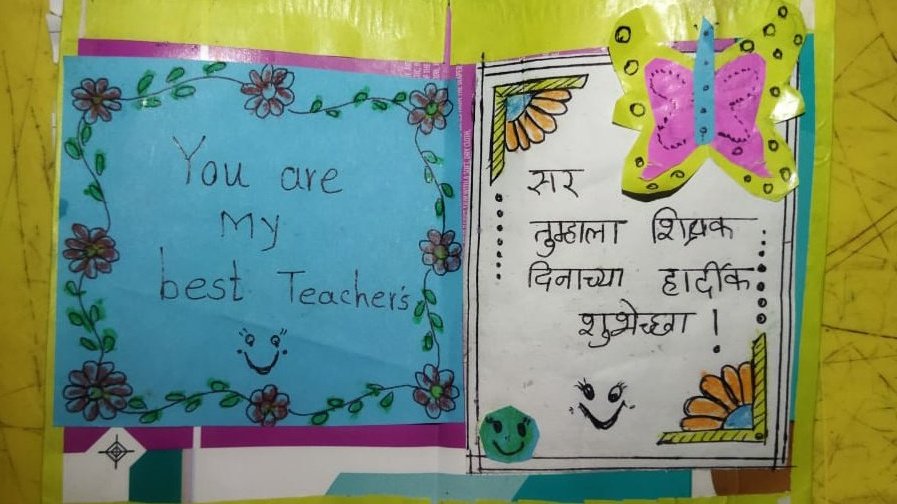 You are
My
best Teacher's
सर
तुम्हाला शिक्षक
दिनाच्या हार्दीक
शुभेच्छा !